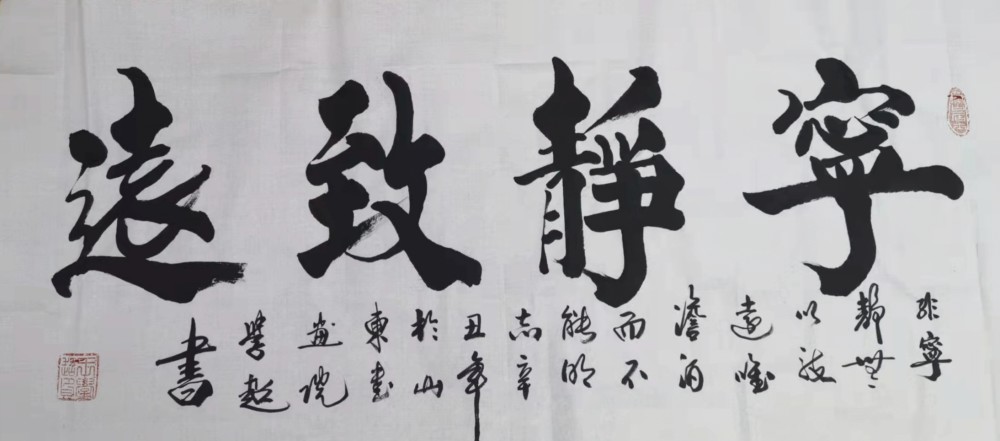 寧靜致遠
非寧
靜無
以致
遠唯
澹
而不
能明
志辛
丑年
於山
東書
畫院
書